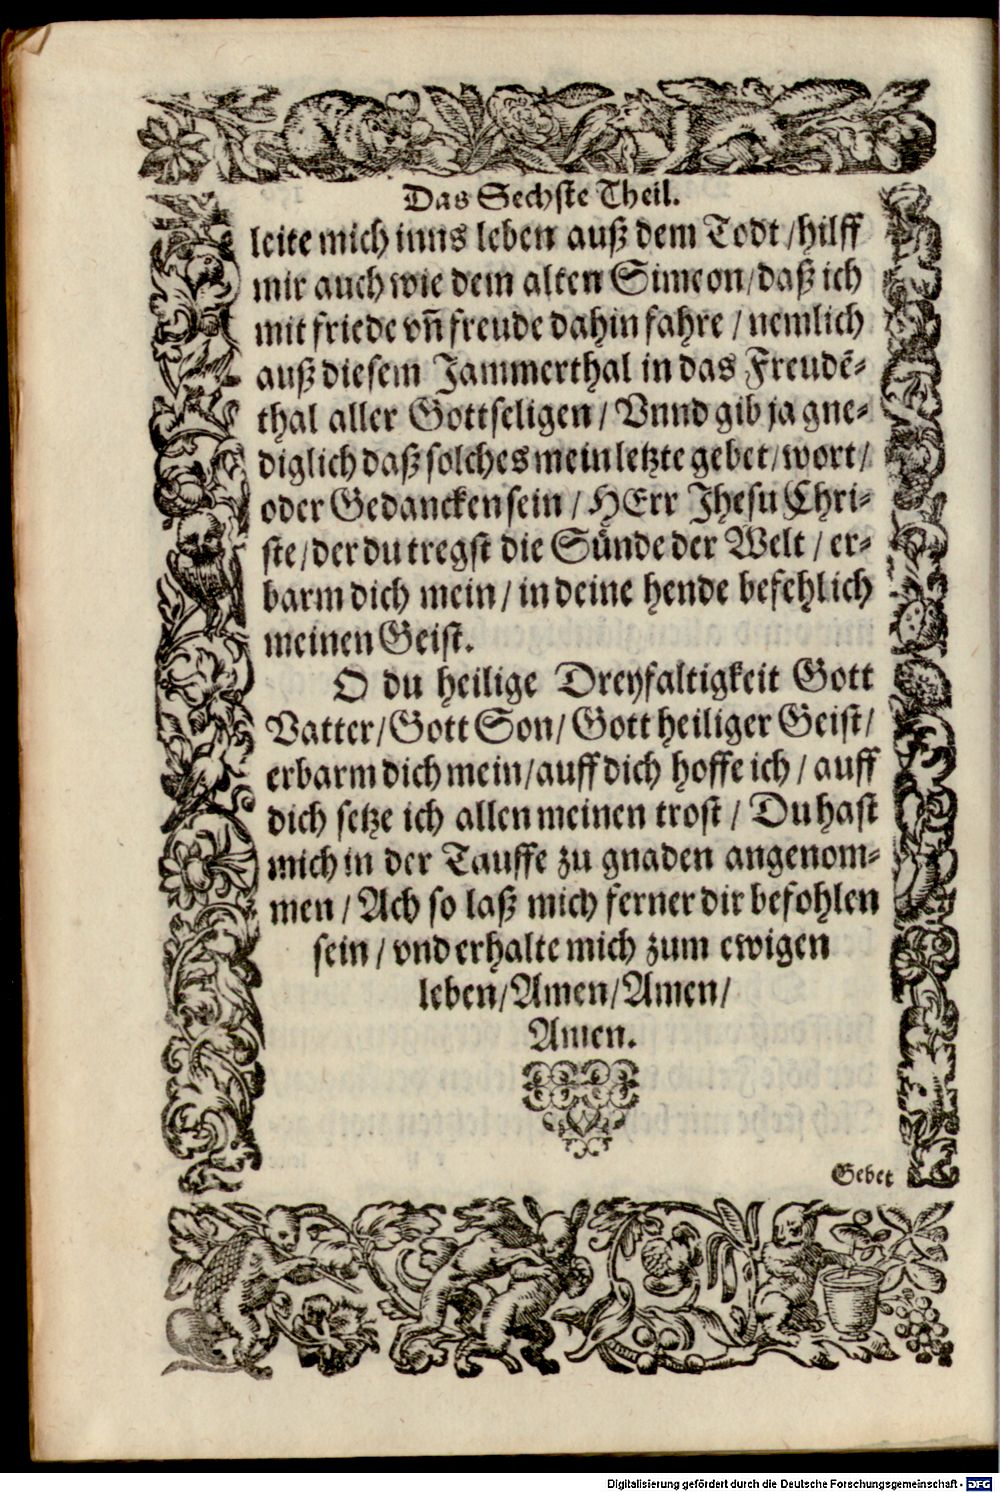 Das Sechste Theil.
leite mich inns leben auß dem Todt / hilff
mir auch wie dem alten Simeon / daß ich
mit friede vñ freude dahin fahre / nemlich
auß diesem Jammerthal in das Freudẽ-
thal aller Gottseligen / Vnnd gib ja gne-
diglich daß solches mein letzte gebet / wort /
oder Gedancken sein / HErr Jhesu Chri-
ste / der du tregst die Sünde der Welt / er-
barm dich mein / in deine hende befehl ich
meinen Geist.
O du heilige Dreyfaltigkeit Gott
Vatter / Gott Son / Gott heiliger Geist /
erbarm dich mein / auff dich hoffe ich / auff
dich setze ich allen meinen trost / Du hast
mich in der Tauffe zu gnaden angenom-
men / Ach so laß mich ferner dir befohlen
sein / vnd erhalte mich zum ewigen
leben / Amen / Amen /
Amen.
Gebet
Digitalisierung gefördert durch die Deutsche Forschungsgemeinschaft - DFG